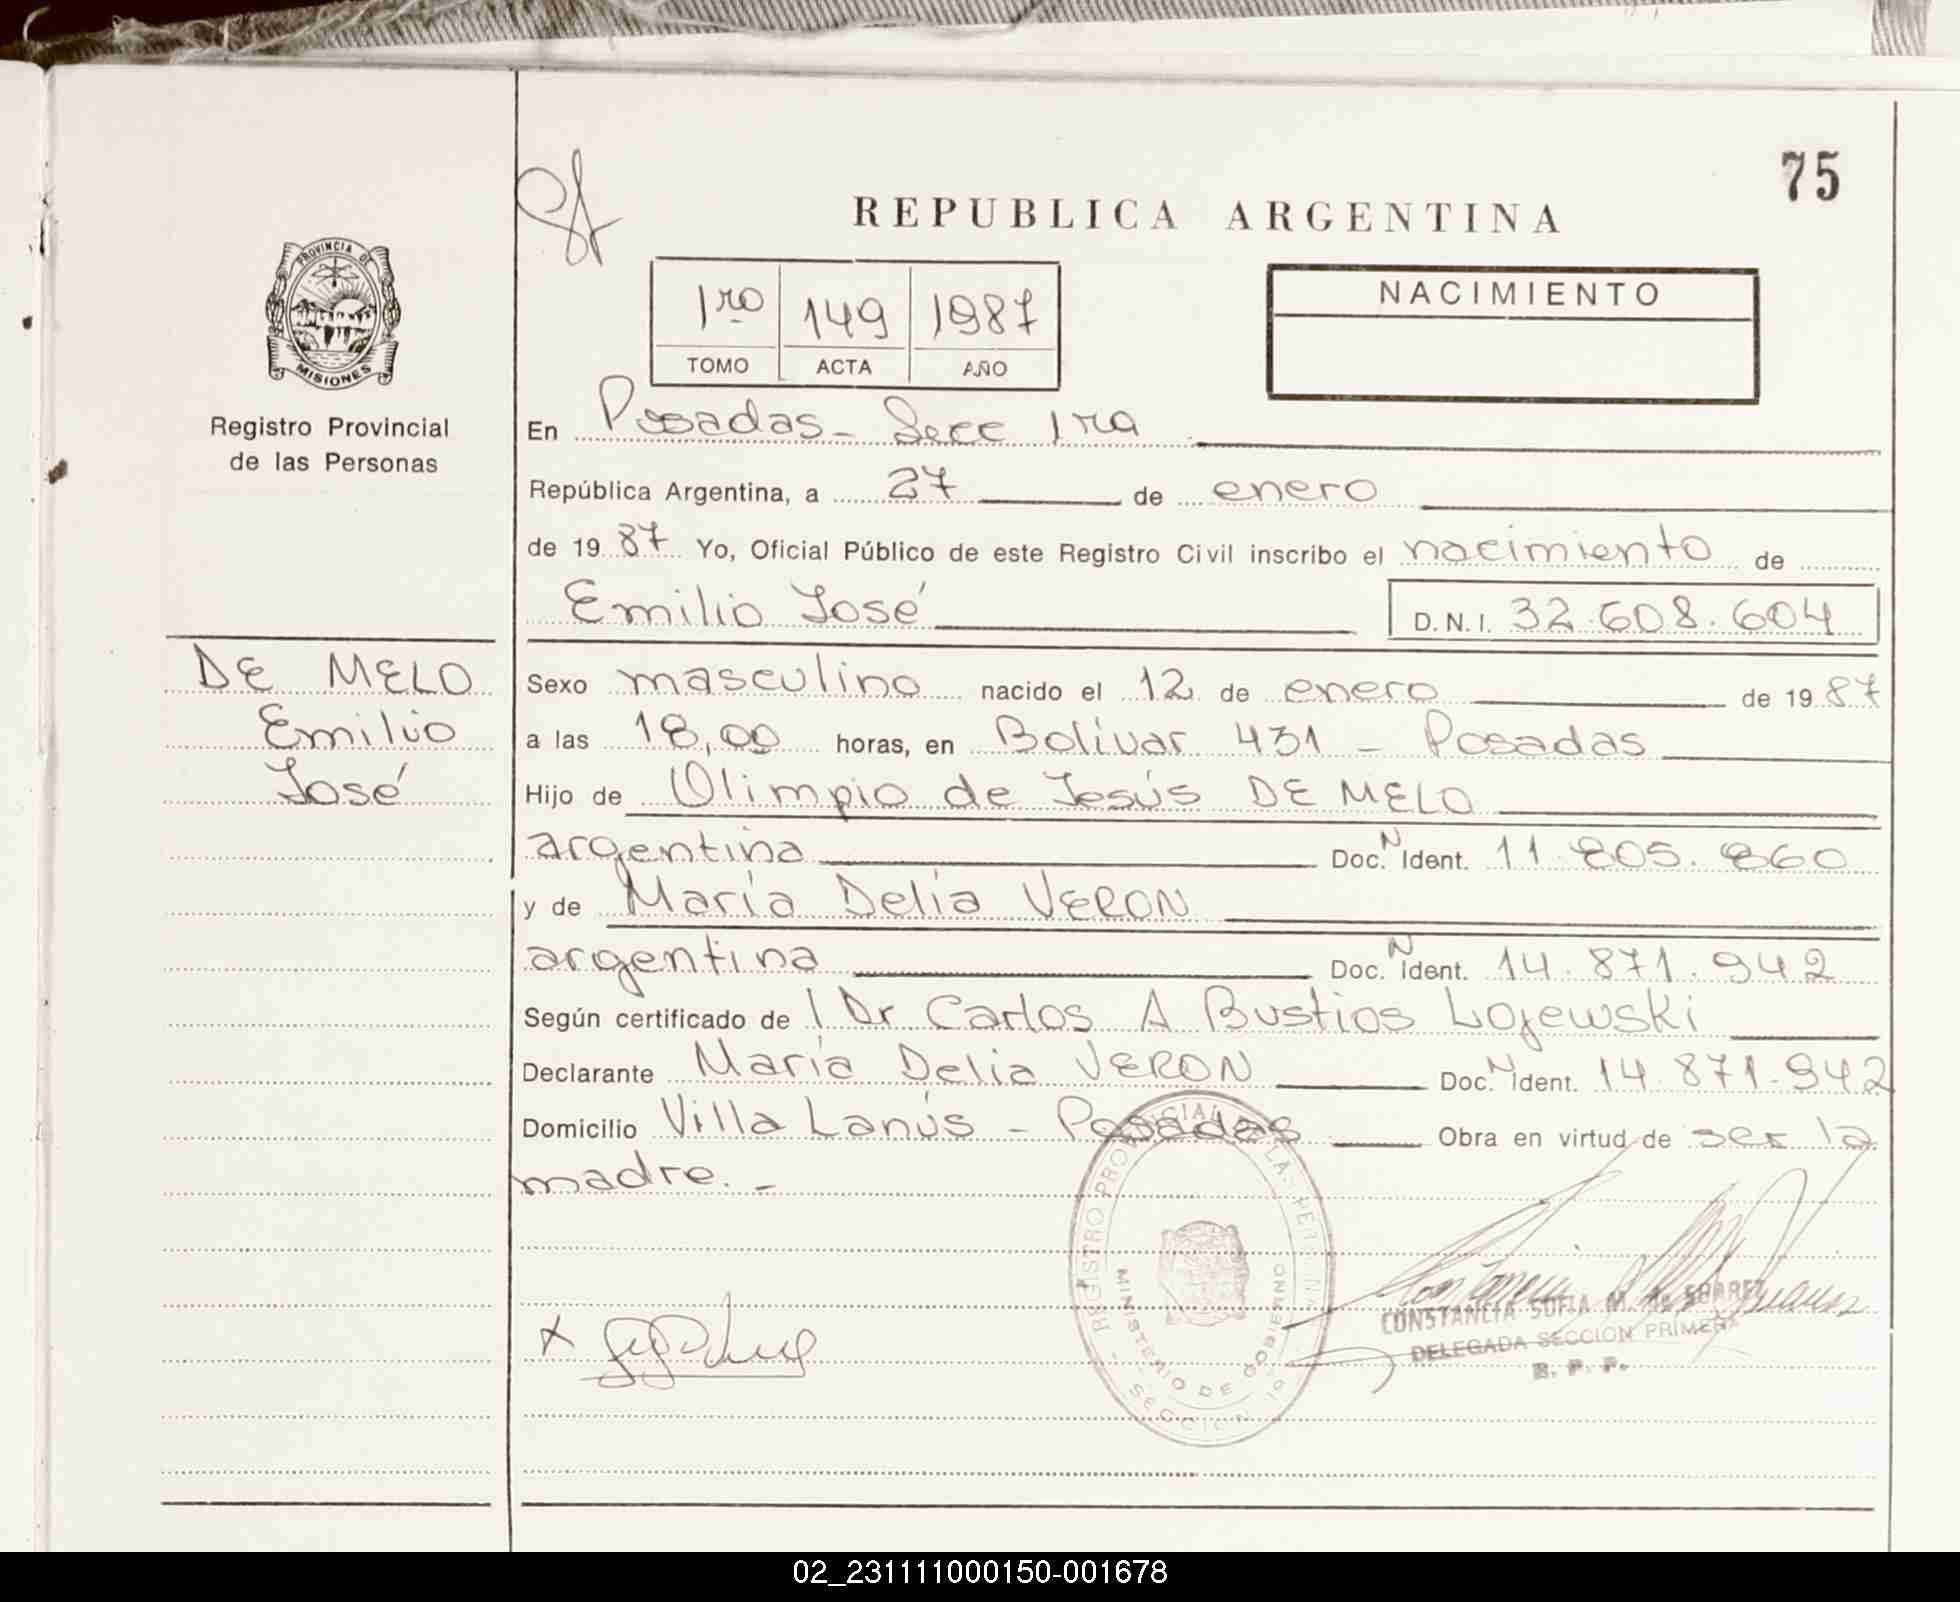 75
REPUBLICA ARGENTINA
PROVINCIA DE
MISIONES
Registro Provincial
de las Personas
1ro 149 1987
TOMO ACTA AÑO
NACIMIENTO
En Posadas - Secc 1ra
República Argentina, a 27 de enero
de 1987 Yo, Oficial Público de este Registro Civil inscribo el nacimiento de
Emilio José D.N.I. 32.608.604
DE MELO
Emilio
José
Sexo masculino nacido el 12 de enero de 1987
a las 18,00 horas, en Bolívar 431 - Posadas
Hijo de Olimpio de Jesús DE MELO
argentina Doc. N Ident. 11.805.860
y de María Delia VERON
argentina Doc. N Ident. 14.871.942
Según certificado de l Dr Carlos A Bustios Lojewski
Declarante María Delia VERON Doc. N Ident. 14.871.942
Domicilio Villa Lanús - Posadas Obra en virtud de ser la
madre. -
REGISTRO PROVINCIAL DE LAS PERSONAS
MINISTERIO DE GOBIERNO
SECCION 1a
CONSTANCIA SOFIA M. de SUAREZ
DELEGADA SECCION PRIMERA
R. P. P.
02_231111000150-001678